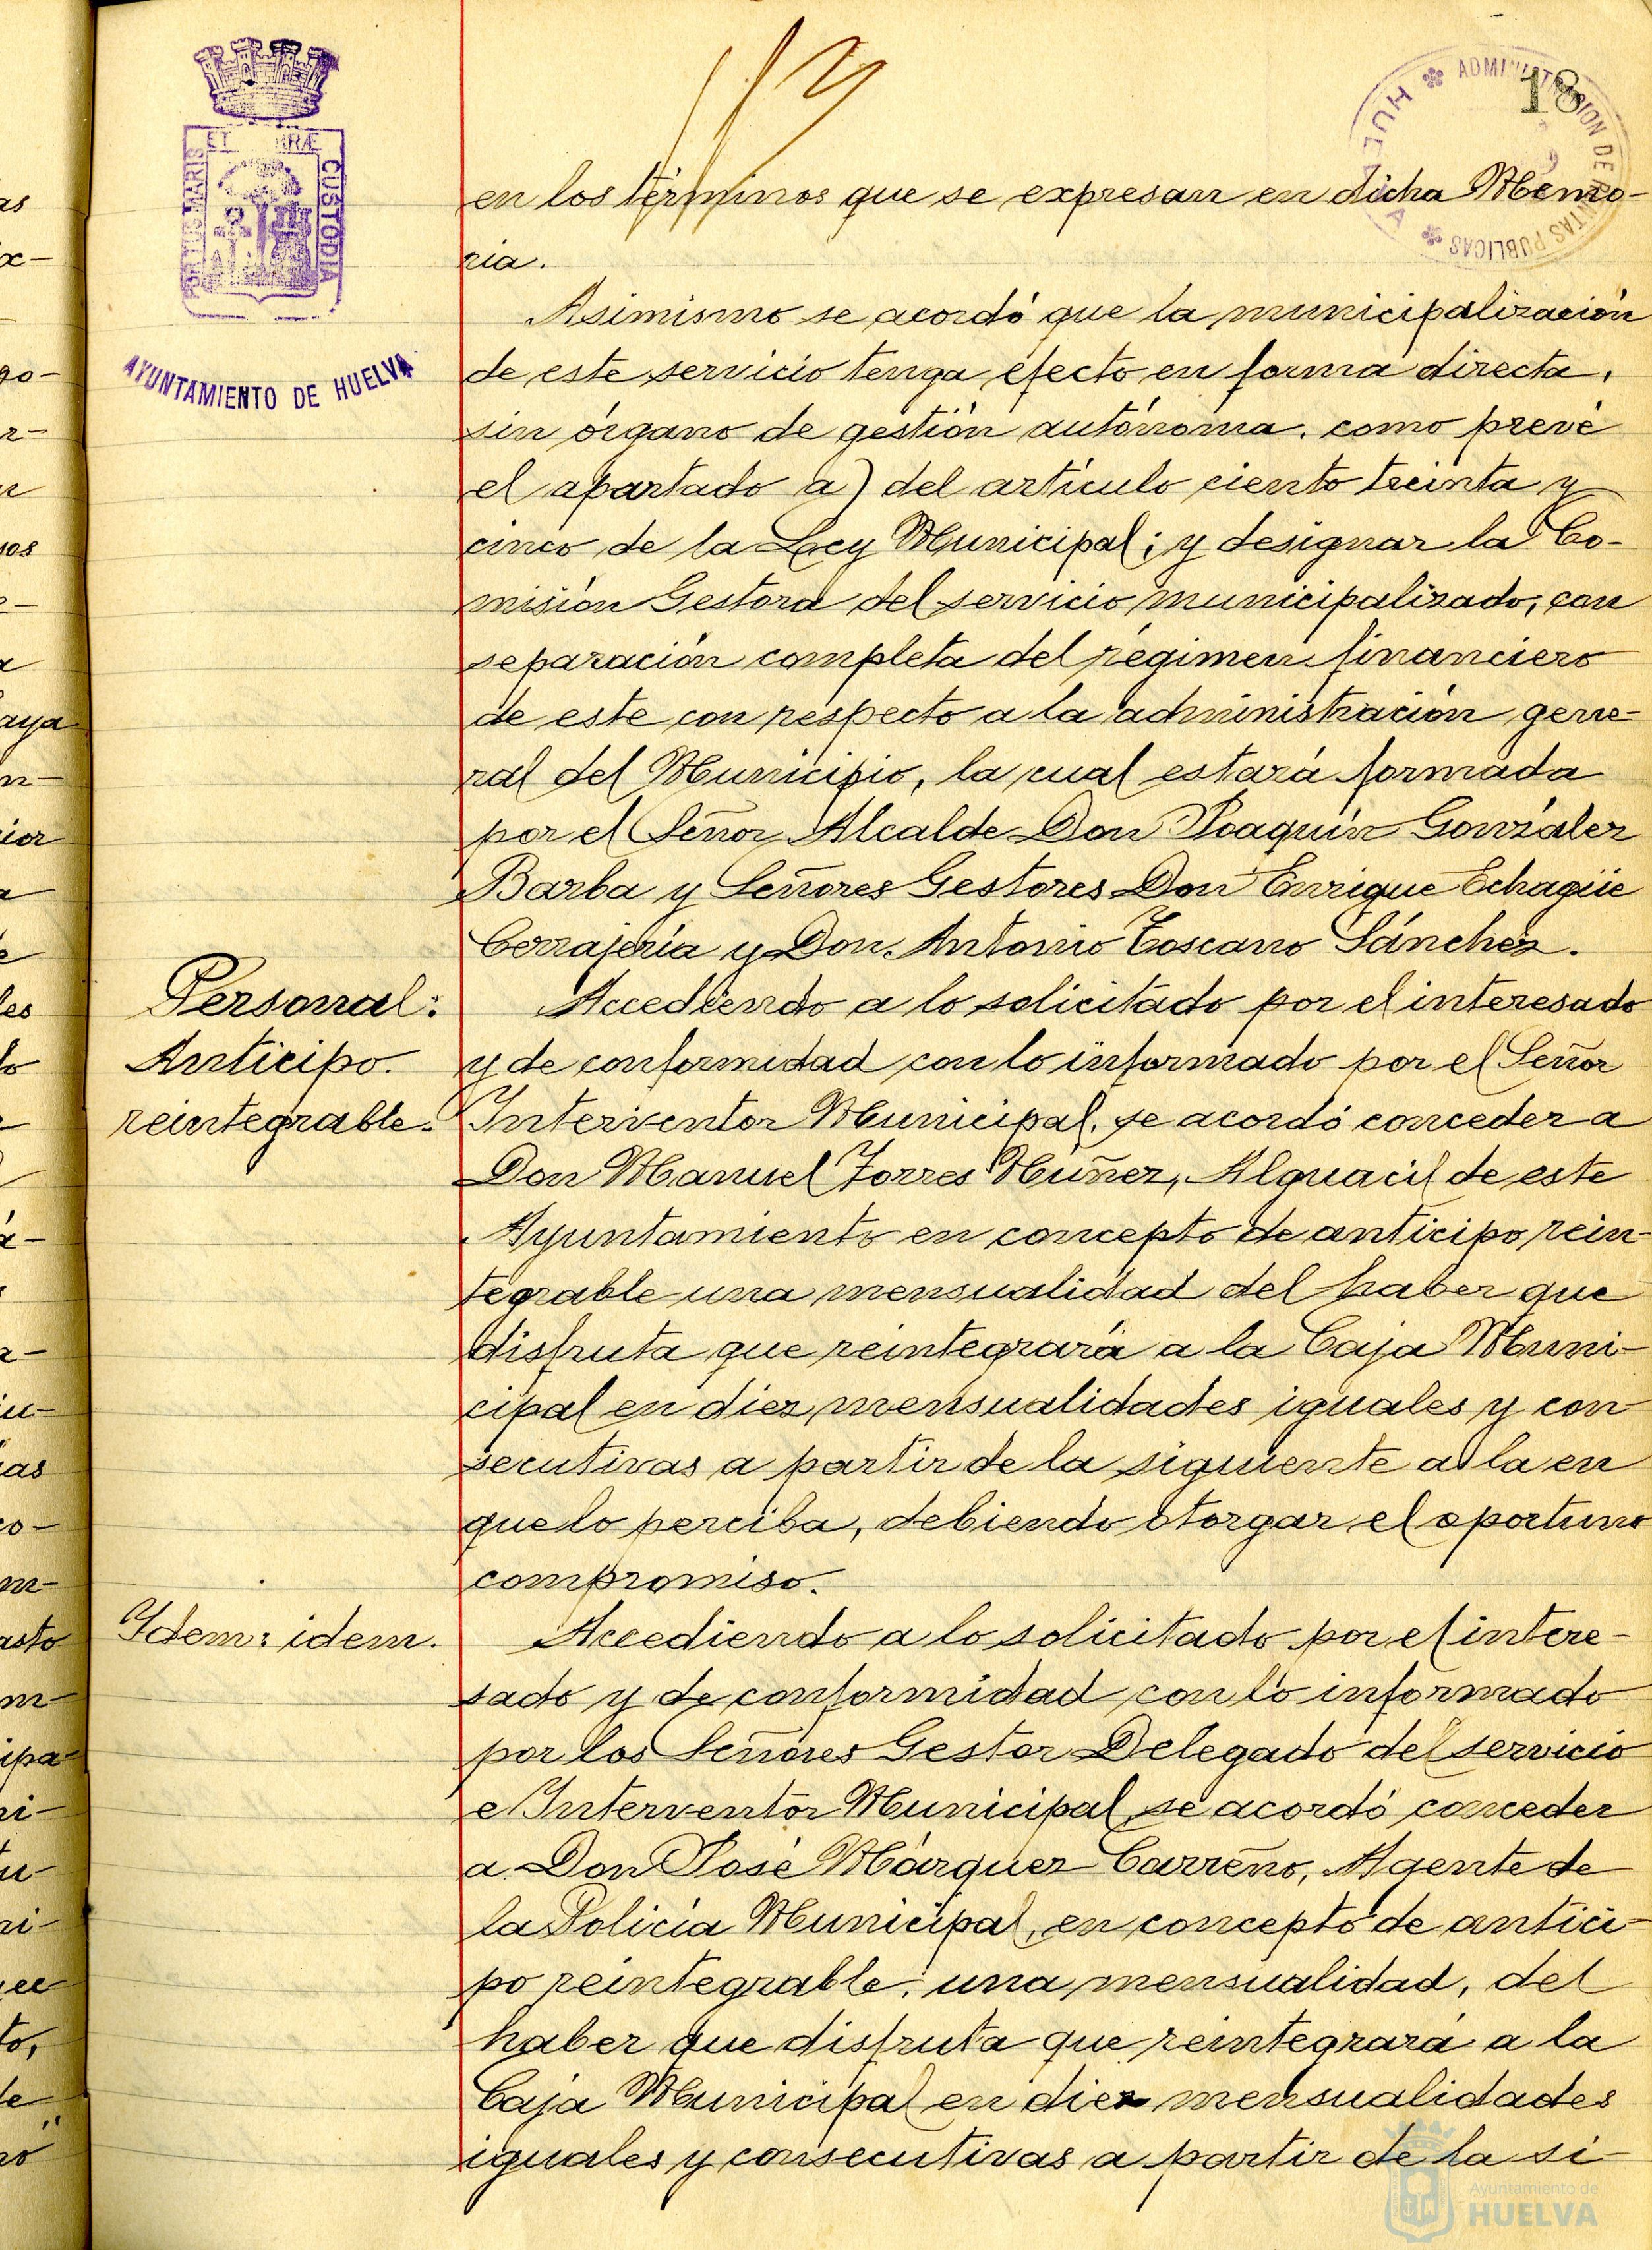 18
ADMINISTRACION DE RENTAS PUBLICAS
HUELVA
PORTUS MARIS ET TERRÆ CUSTODIA
AYUNTAMIENTO DE HUELVA
en los términos que se expresan en dicha Memo-
ria.
Asimismo se acordó que la municipalización
de este servicio tenga efecto en forma directa,
sin órgano de gestión autónoma, como prevé
el apartado a) del artículo ciento treinta y
cinco de la Ley Municipal; y designar la Co-
misión Gestora del servicio municipalizado, con
separación completa del régimen financiero
de este con respecto a la administración gene-
ral del Municipio, la cual estará formada
por el Señor Alcalde Don Joaquín González
Barba y Señores Gestores Don Enrique Echagüe
Cerrajería y Don Antonio Toscano Sánchez.
Personal:
Anticipo
reintegrable.
Accediendo a lo solicitado por el interesado
y de conformidad con lo informado por el Señor
Interventor Municipal, se acordó conceder a
Don Manuel Torres Núñez, Alguacil de este
Ayuntamiento en concepto de anticipo rein-
tegrable una mensualidad del haber que
disfruta que reintegrará a la Caja Muni-
cipal en diez mensualidades iguales y con-
secutivas a partir de la siguiente a la en
que lo perciba, debiendo otorgar el oportuno
compromiso.
Idem: idem.
Accediendo a lo solicitado por el intere-
sado y de conformidad con lo informado
por los Señores Gestor Delegado del servicio
e Interventor Municipal se acordó conceder
a Don José Márquez Carreño, Agente de
la Policía Municipal, en concepto de antici-
po reintegrable, una mensualidad, del
haber que disfruta que reintegrará a la
Caja Municipal en diez mensualidades
iguales y consecutivas a partir de la si-
Ayuntamiento de
HUELVA